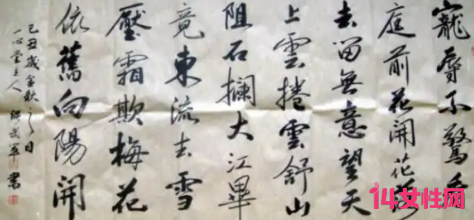 寵辱不驚看
庭前花開花落
去留無意望天
上雲捲雲舒山
阻石攔大江畢
竟東流去雪
壓霜欺梅花
依舊向陽開
己丑歲日
主人書
14女性网